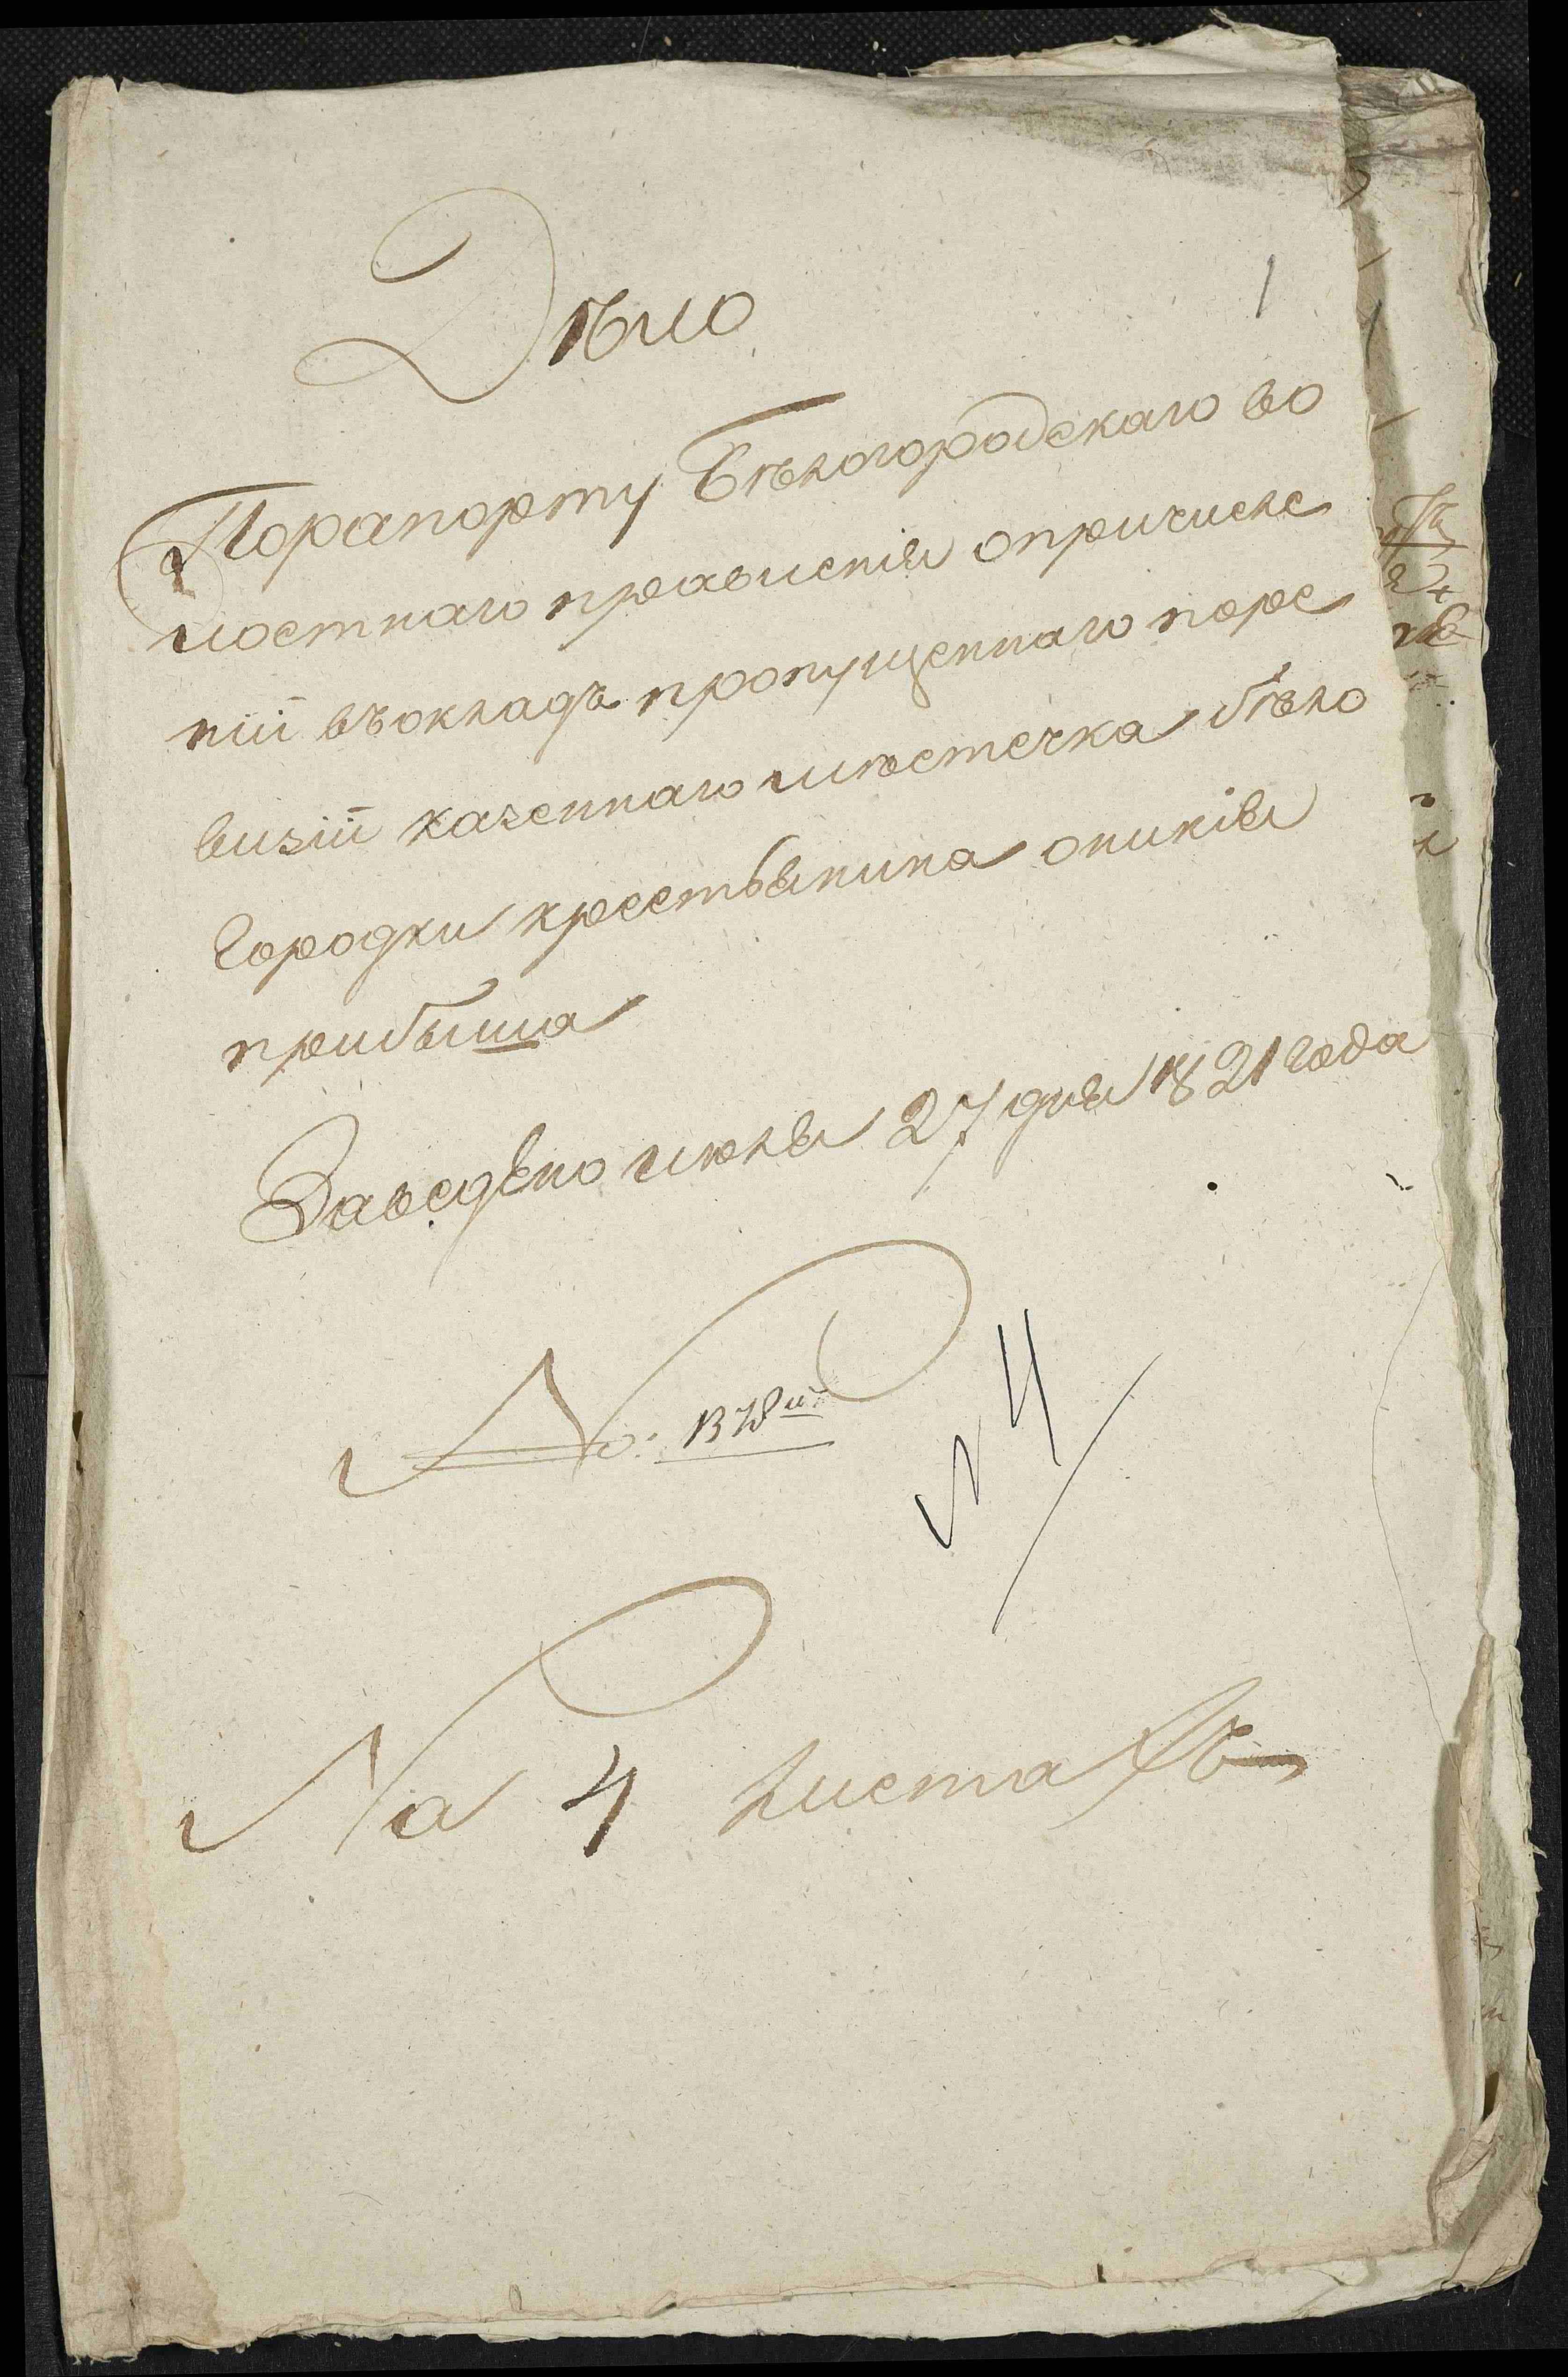 Дѣло
1
Порапорту Бѣлогородскаго во
лостнаго правленія опричисле
ніи въокладъ пропущеннаго поре
визіи казеннаго мѣстечка бѣло
городки крестьянина оникія
прибыша
Заведено июля 27 дня 1821 года
No: 1378й
N 4
На 4 листахъ